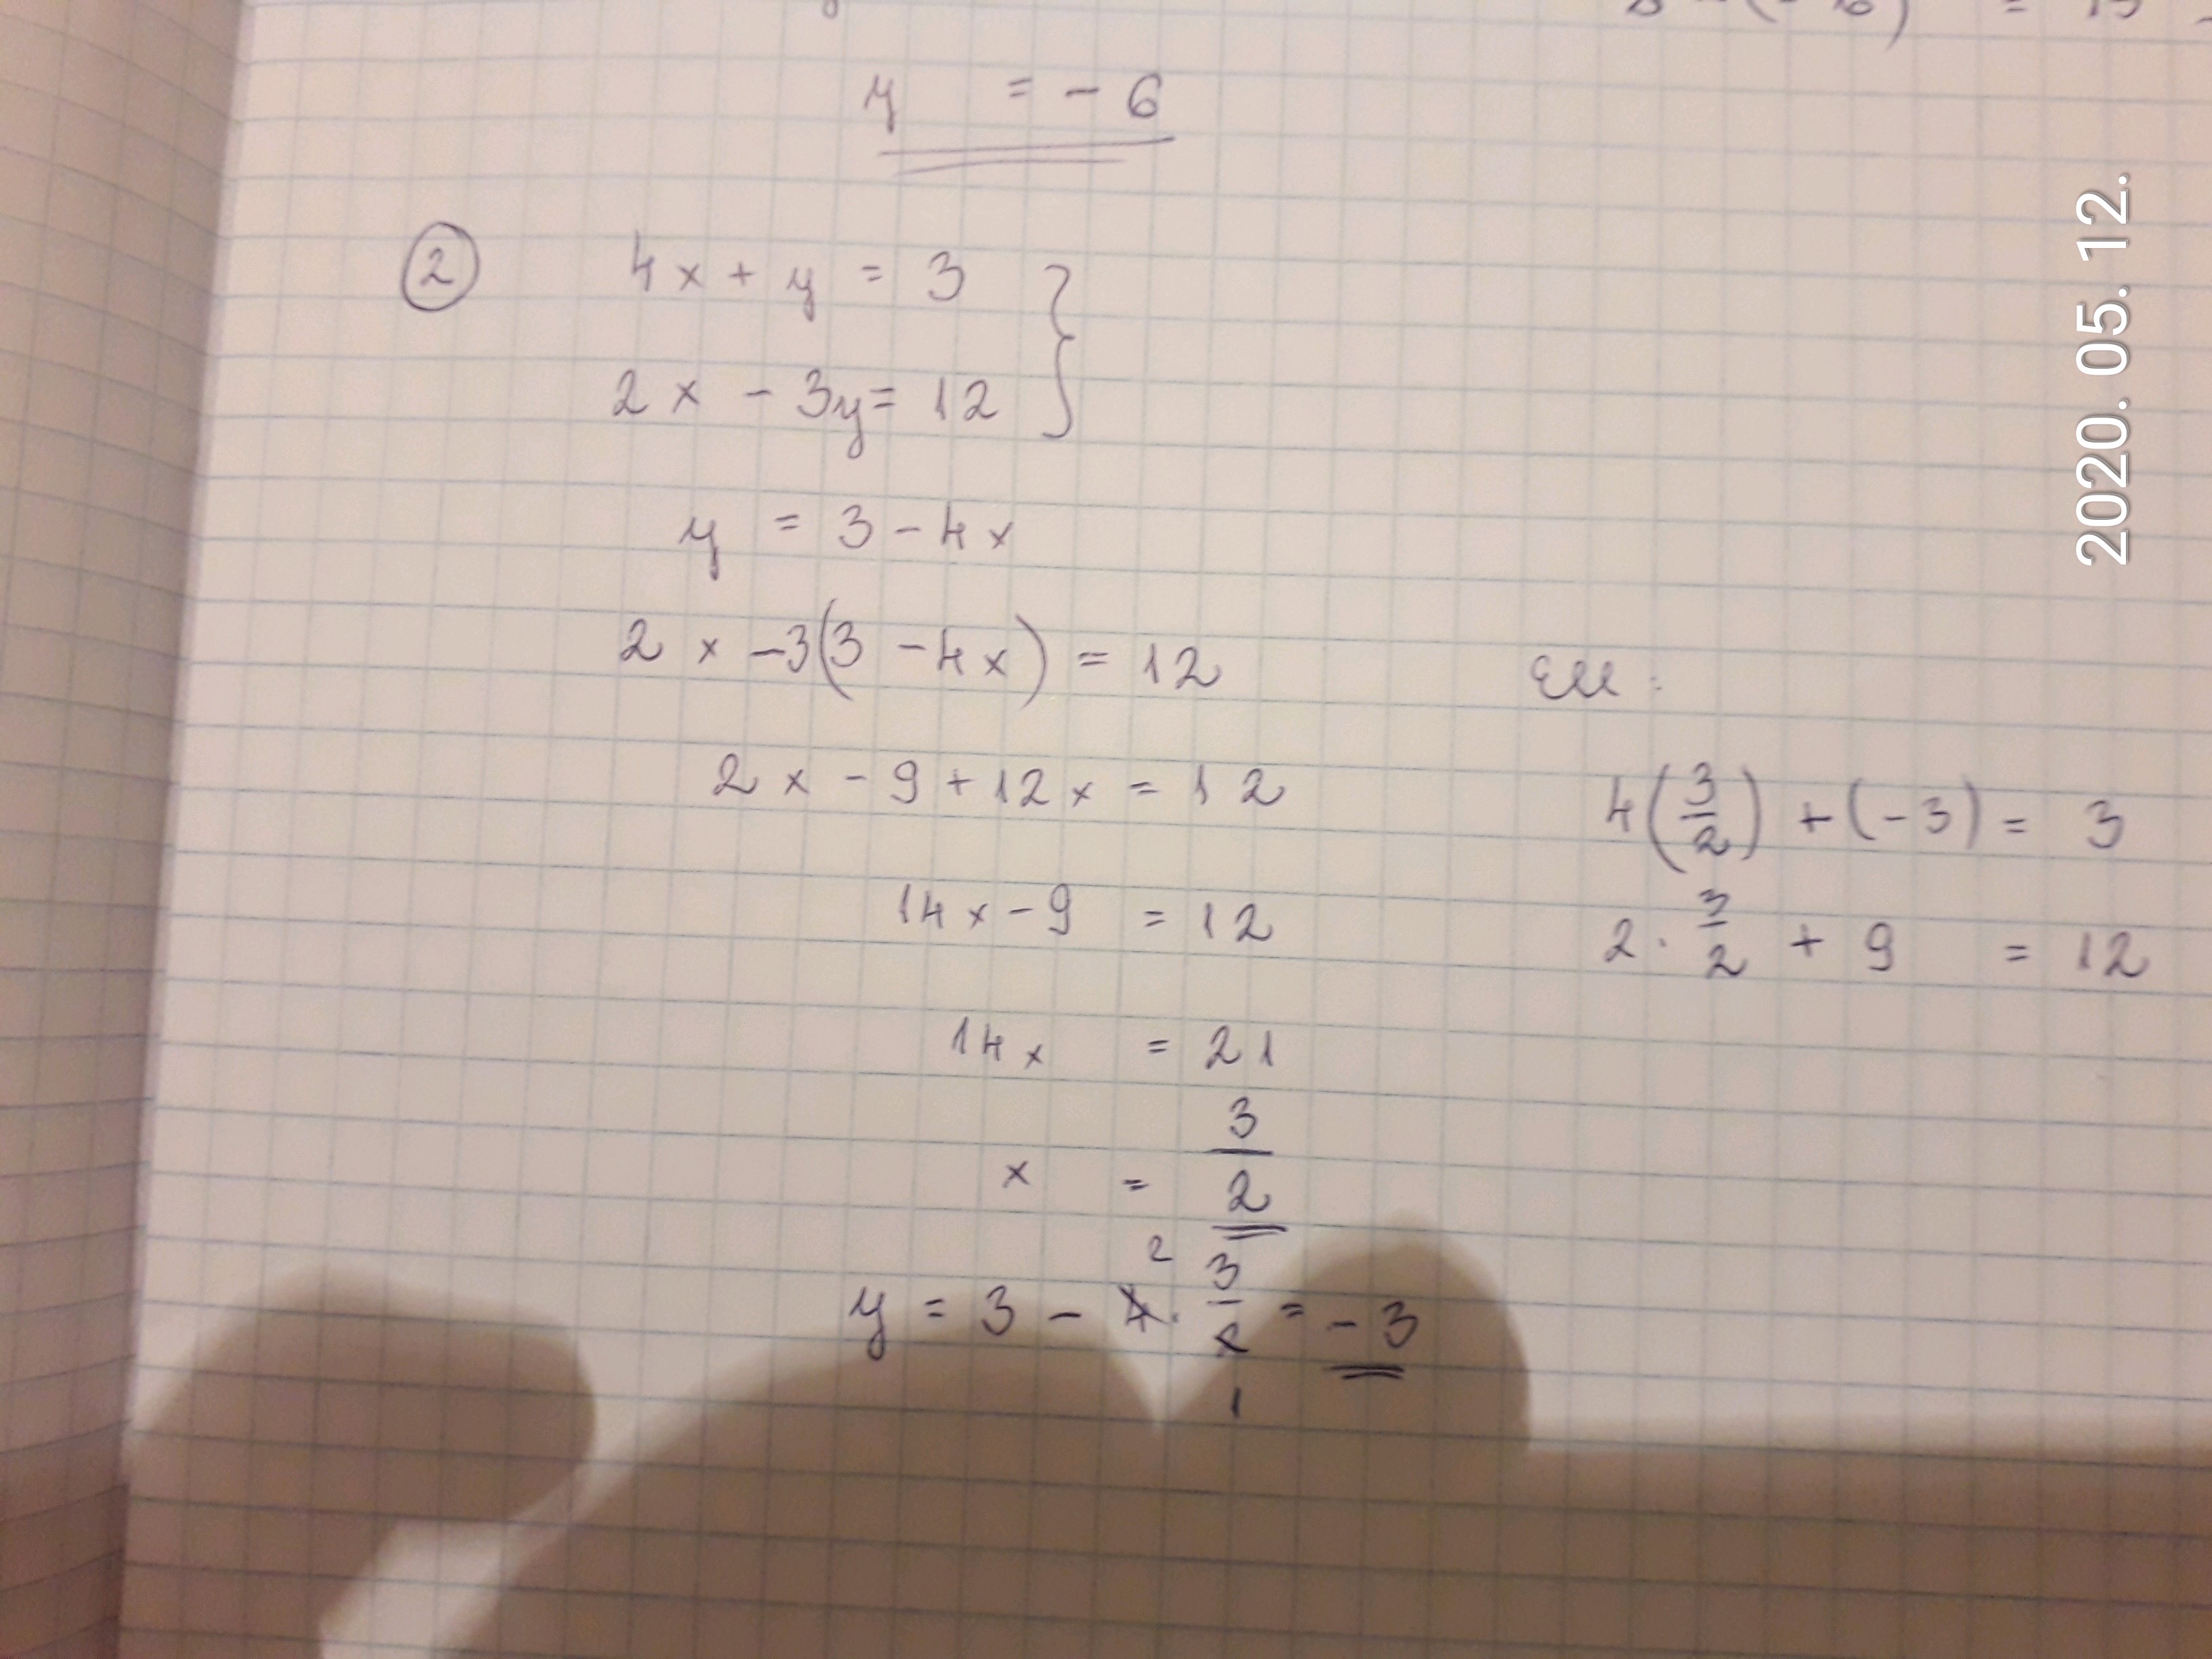 y = - 6
② 4x + y = 3 }
2x - 3y = 12
y = 3 - 4x
2x -3(3 - 4x) = 12
2x - 9 + 12x = 12
14x - 9 = 12
14x = 21
x = 3/2
y = 3 - 4 · 3/2 = - 3
2
1
Ell:
4(3/2) + (-3) = 3
2 · 3/2 + 9 = 12
2020. 05. 12.